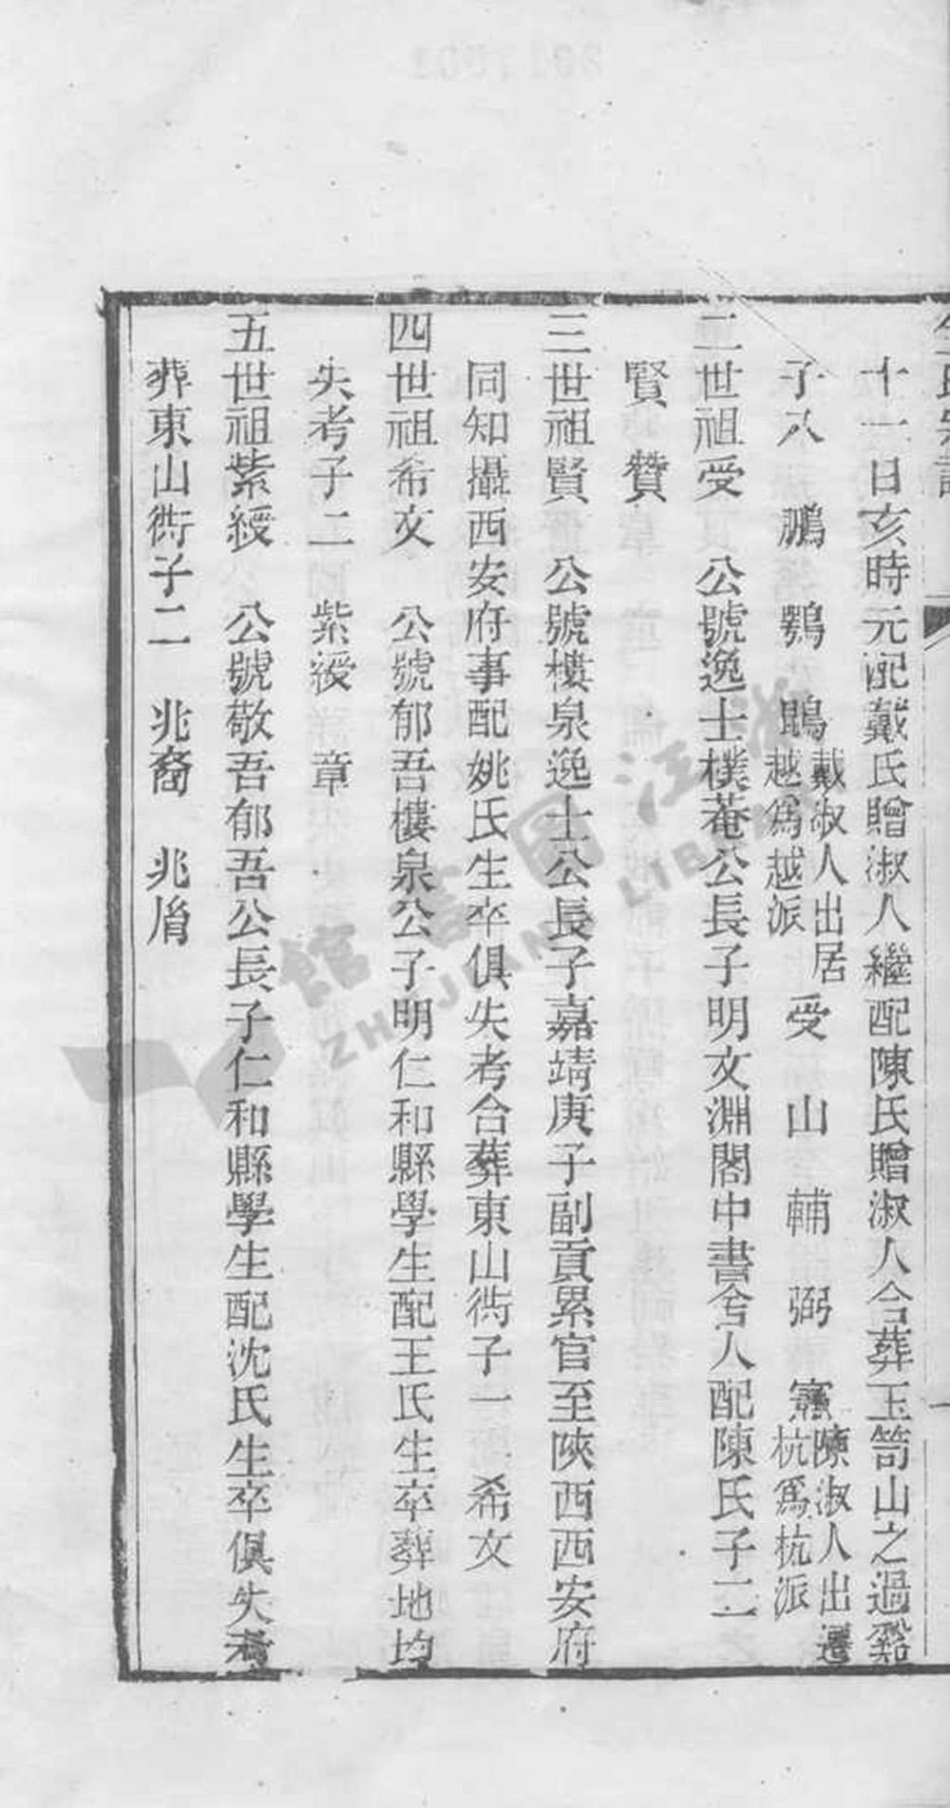 十一日亥時元配戴氏贈淑人繼配陳氏贈淑人合葬玉笥山之過
子八　鵬　鶚　鵾　戴淑人出居越爲越派　受　山　輔　弼　陳淑人出遷杭爲杭派
二世祖受　公號逸士樸菴公長子明文淵閣中書舍人配陳氏子二
賢　贊
三世祖賢　公號樓泉逸士公長子嘉靖庚子副貢累官至陝西西安府
同知攝西安府事配姚氏生卒俱失考合葬東山衖子一　希文
四世祖希文　公號郁吾樓泉公子明仁和縣學生配王氏生卒葬地均
失考子二　紫綬　章
五世祖紫綬　公號敬吾郁吾公長子仁和縣學生配沈氏生卒俱失考
葬東山衖子二　兆裔　兆㣧
浙江圖書館
ZHEJIANG LIBRARY